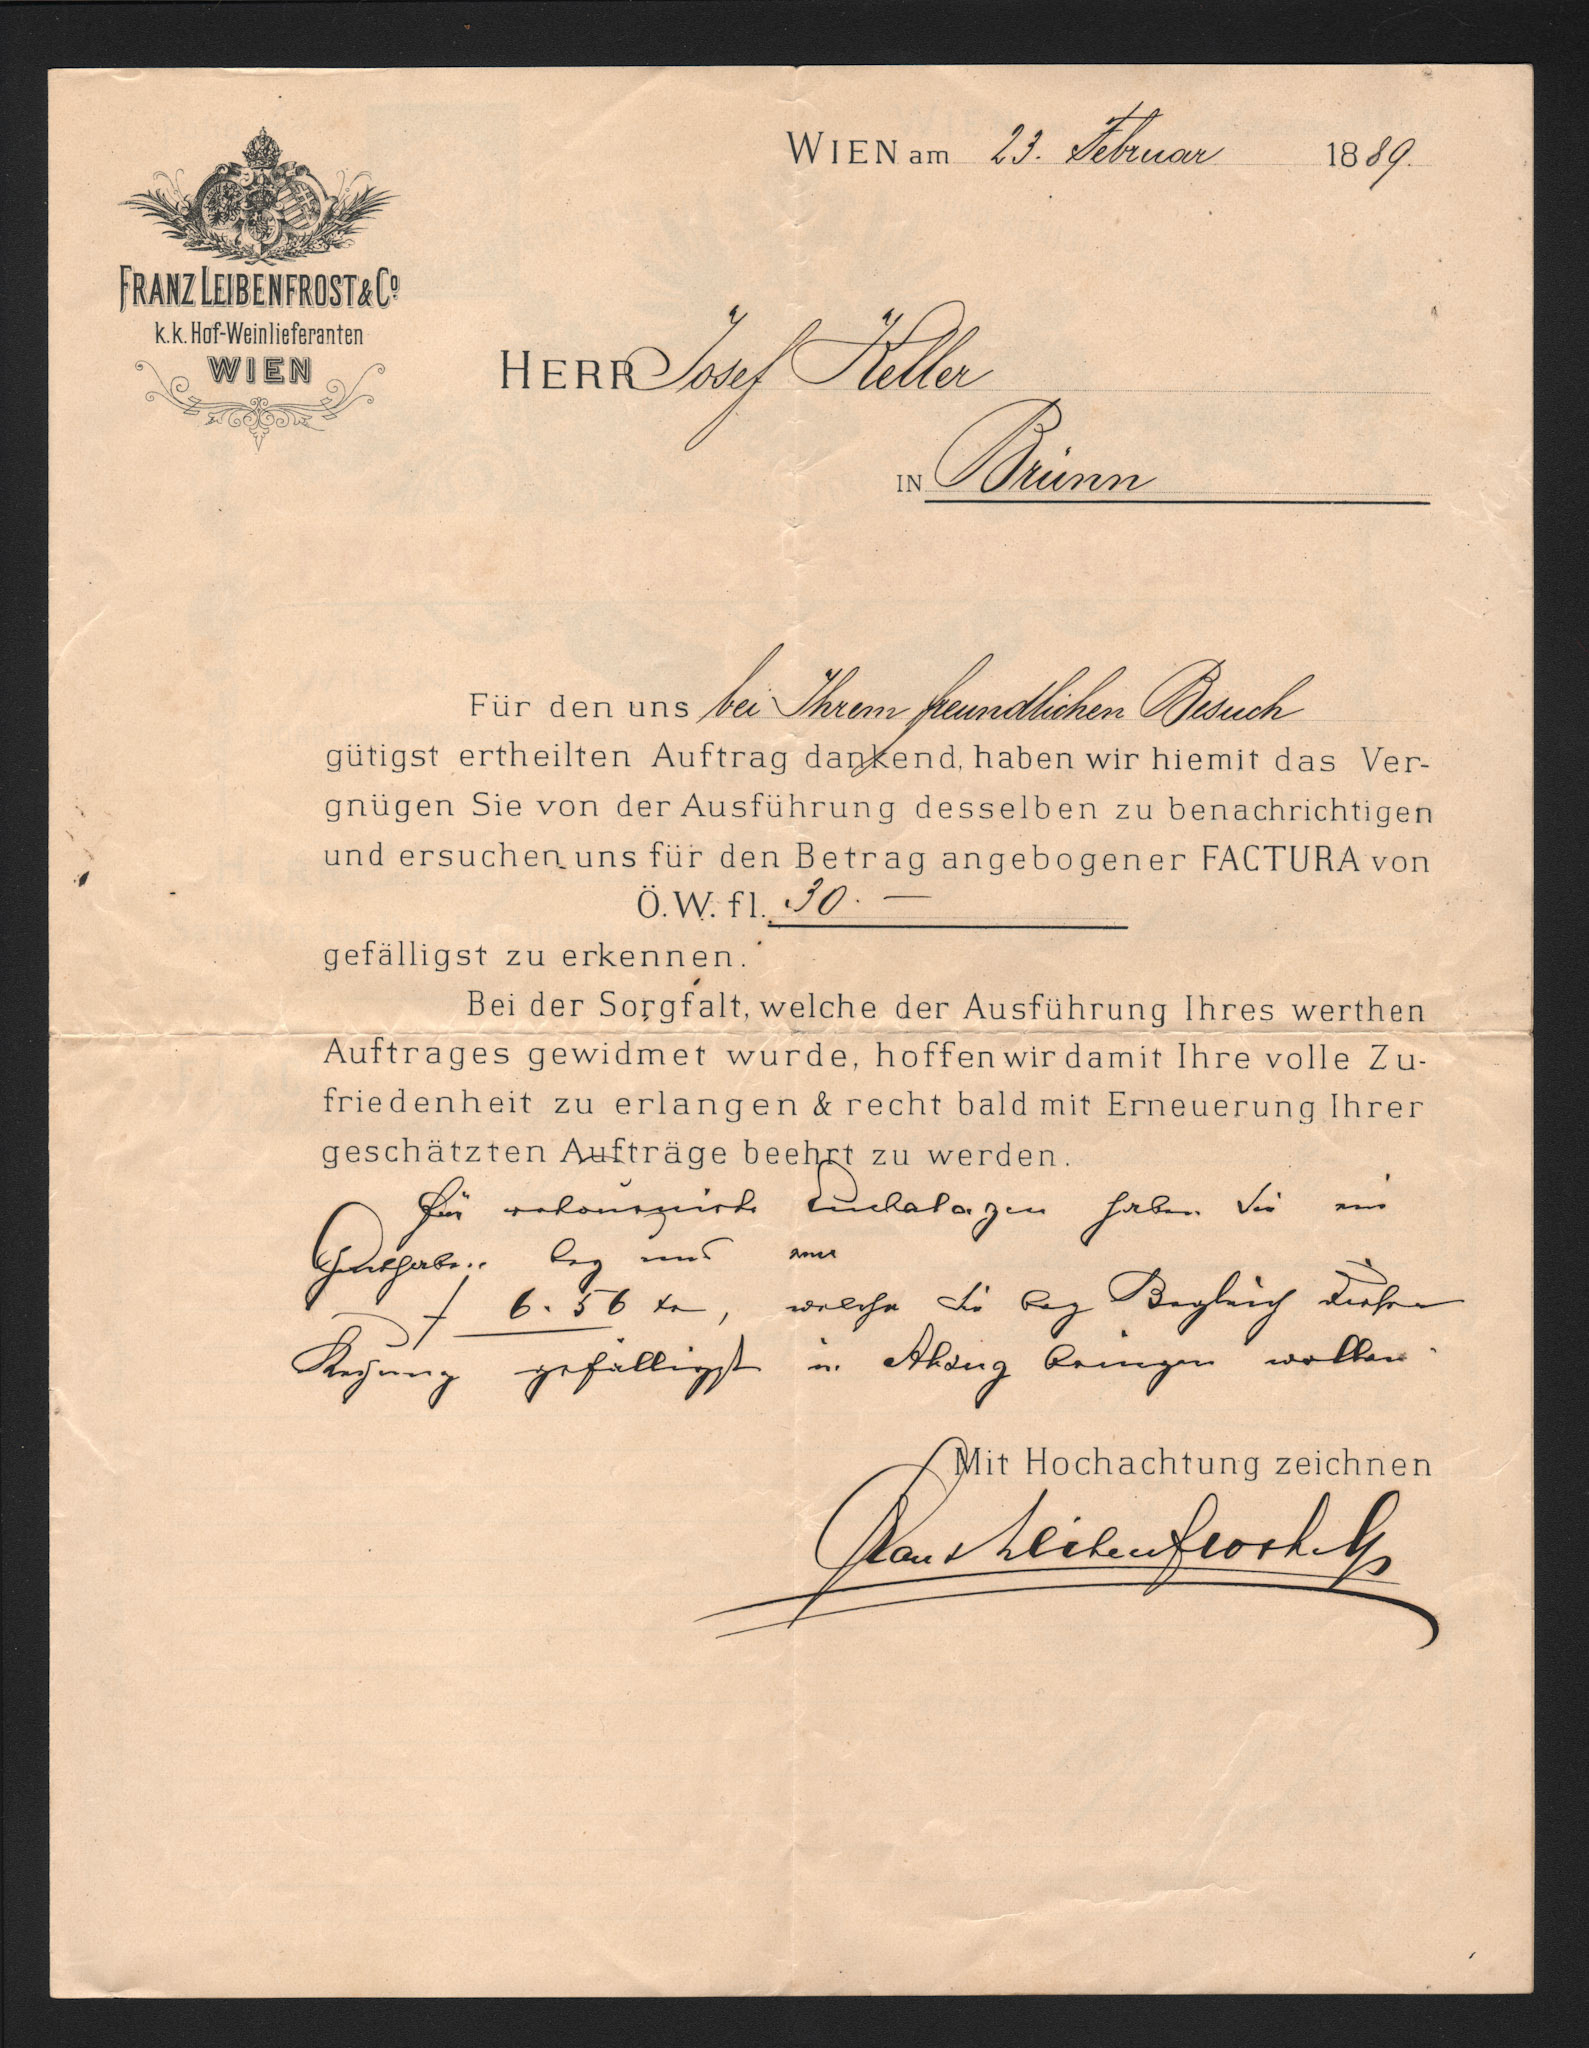 WIEN am 23. Februar 1889.
FRANZ LEIBENFROST & Cº
k. k. Hof-Weinlieferanten
WIEN
HERR Josef Keller
IN Brünn
Für den uns bei Ihrem freundlichen Besuch
gütigst ertheilten Auftrag dankend, haben wir hiemit das Ver-
gnügen Sie von der Ausführung desselben zu benachrichtigen
und ersuchen uns für den Betrag angebogener FACTURA von
Ö. W. fl. 30. —
gefälligst zu erkennen.
Bei der Sorgfalt, welche der Ausführung Ihres werthen
Auftrages gewidmet wurde, hoffen wir damit Ihre volle Zu-
friedenheit zu erlangen & recht bald mit Erneuerung Ihrer
geschätzten Aufträge beehrt zu werden.
Für retournirte Emballagen haben Sie ein
Guthaben bey uns von
f 6.56 kr, welche Sie bey Begleich dieser
gefälligst in Abzug bringen wollen.
Mit Hochachtung zeichnen
Franz Leibenfrost & Co